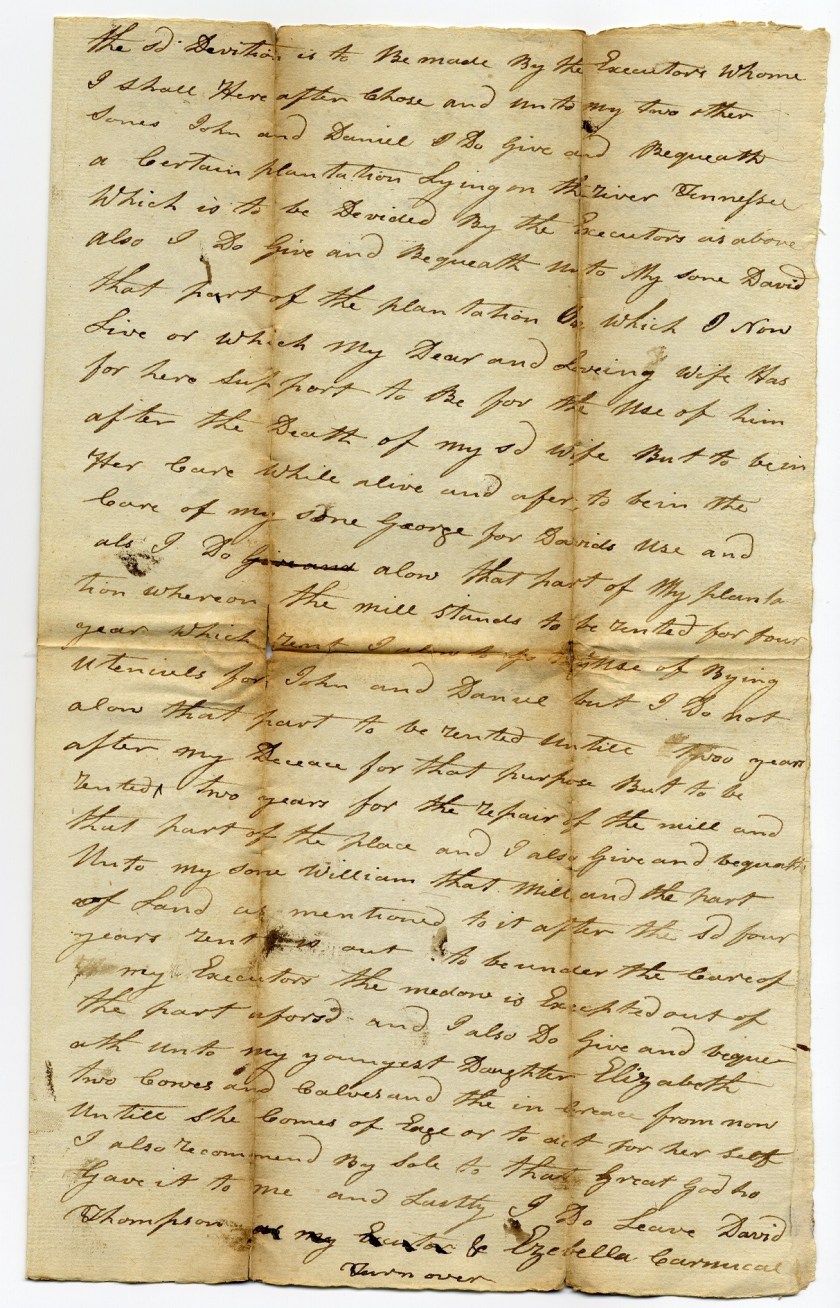 the sd Devition is to Be made By the Executors Whome
I shall Here after Chose and unto my two other
sones John and Daniel I Do Give and Bequeath
a Certain plantation Lying on the river Tennessee
Which is to be Devided By the Executors as above
also I Do Give and Bequeath unto My sone David
that part of the plantation On Which I Now
Live or which My Dear and Loveing Wife Has
for here support to Be for the Use of him
after the Death of my sd Wife But to be in
Her Care While alive and afer to be in the
Care of my sone George for Davids Use and
als I Do Give and alow that part of My planta
tion whereon the mill stands to be rented for four
year which rent I alow to go to the Use of Bying
Uteniuls for John and Daniel but I Do not
alow that part to be rented Untill twoo years
after my Deceace for that purpose But to be
rented two years for the repair of the mill and
that part of the place and I also Give and bequath
Unto my sone William that Mill and the part
of Land as mentioned to it after the sd four
years rent is out to be under the Care of
my Executors the medow is Excepted out of
the part aforsd and I also Do Give and beque
ath unto my youngest Daughter Elizabeth
two Cowes and Calves and the in Creace from now
Untill She Comes of Eage or to act for her self
I also recommend My Sole to that Great God ho
Gave it to me and Lastly I Do Leave David
Thompson as my Exutor & Ezebella Carmical
Turn over